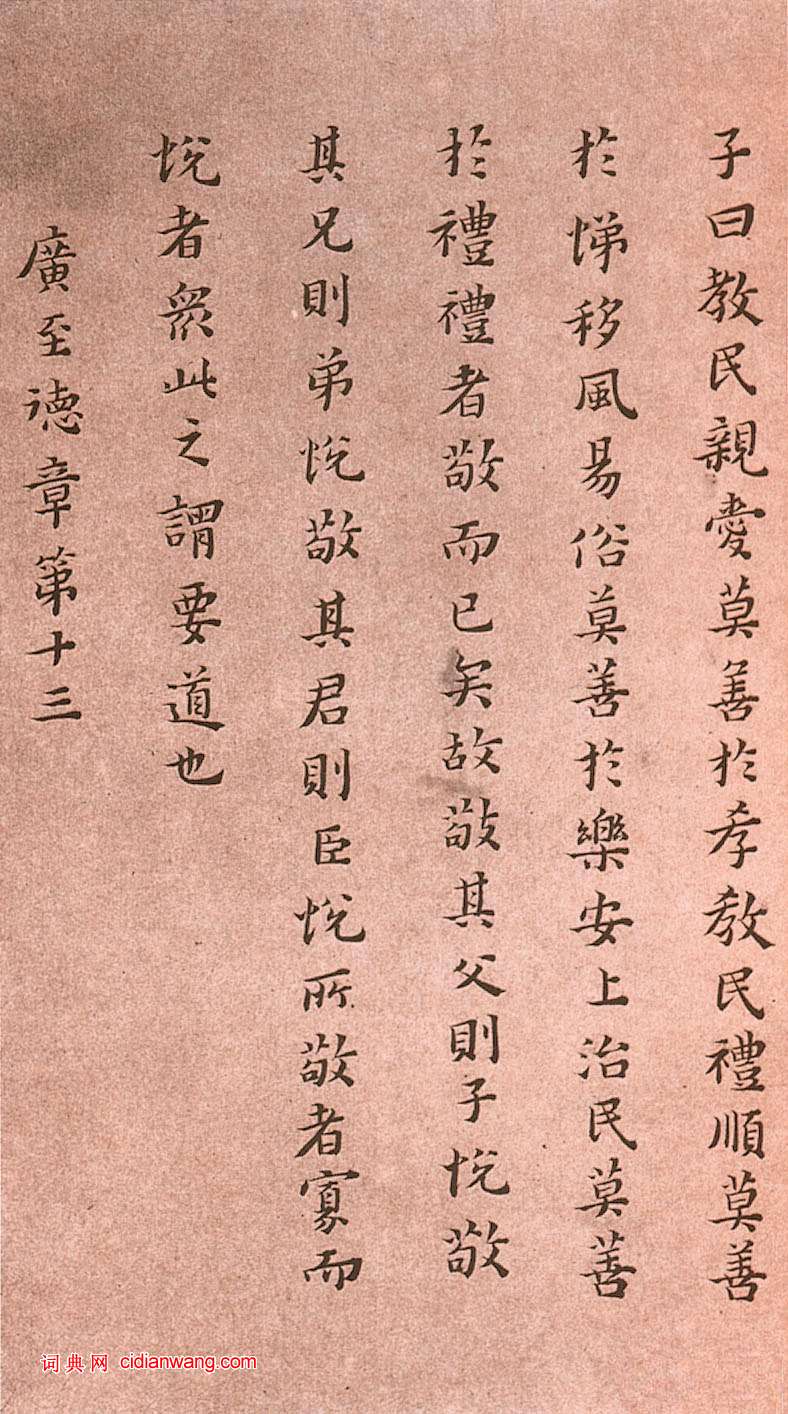 子曰教民親愛莫善於孝教民禮順莫善
於悌移風易俗莫善於樂安上治民莫善
於禮禮者敬而已矣故敬其父則子悅敬
其兄則弟悅敬其君則臣悅所敬者寡而
悅者眾此之謂要道也
廣至德章第十三
词典网 cidianwang.com